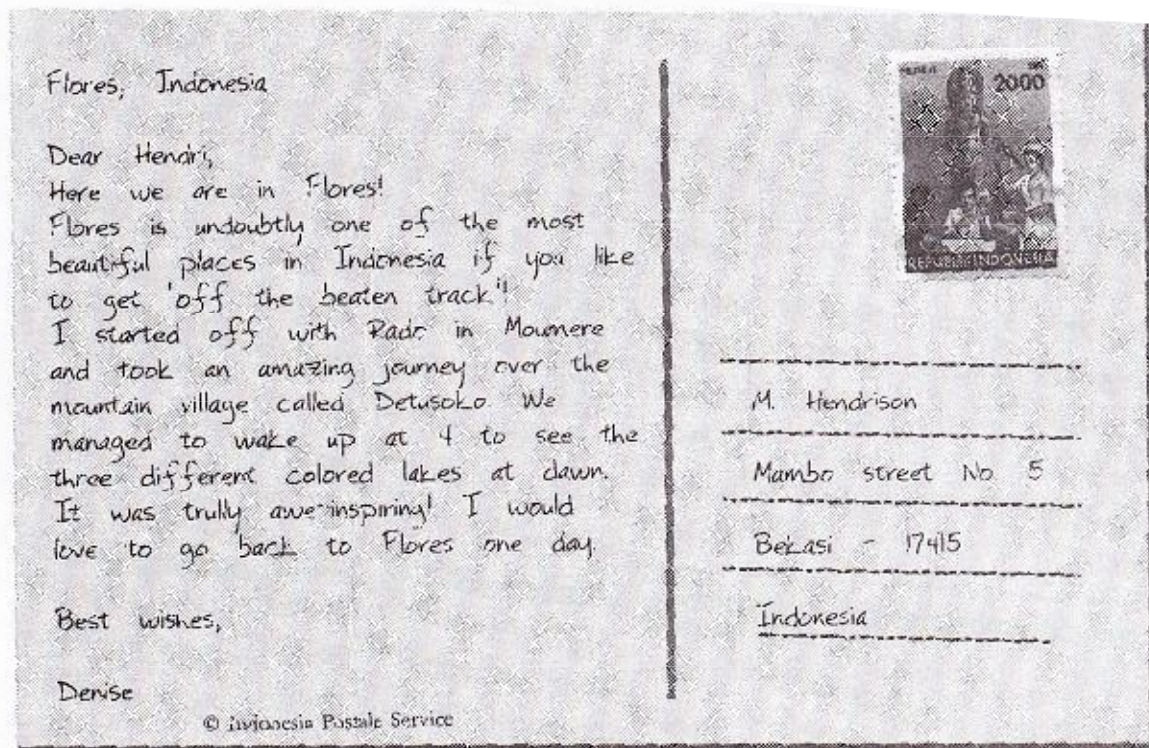 Flores, Indonesia
Dear Hendri,
Here we are in Flores!
Flores is undoubtly one of the most
beautiful places in Indonesia if you like
to get 'off the beaten track'!
I started off with Rado in Moumere
and took an amazing journey over the
mountain village called Detusoko. We
managed to wake up at 4 to see the
three different colored lakes at dawn.
It was trully awe-inspiring! I would
love to go back to Flores one day.
Best wishes,
Denise
© Indonesia Postale Service
2000
REPUBLIK INDONESIA
M. Hendrison
Mambo street No 5
Bekasi - 17415
Indonesia